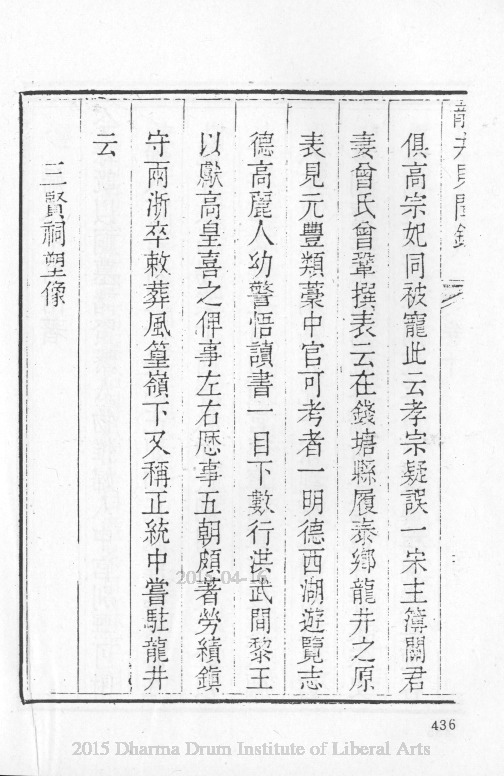 龍井見聞錄
俱高宗妃同被寵此云孝宗疑誤一宋主簿關君
妻曾氏曾鞏撰表云在錢塘縣履泰鄉龍井之原
表見元豐類藁中官可考者一明德西湖遊覽志
德高麗人幼警悟讀書一目下數行洪武間黎王
以獻高皇喜之俾事左右厯事五朝頗著勞績鎮
守兩浙卒敕葬風篁嶺下又稱正統中嘗駐龍井
云
三賢祠塑像
436
2015 Dharma Drum Institute of Liberal Arts